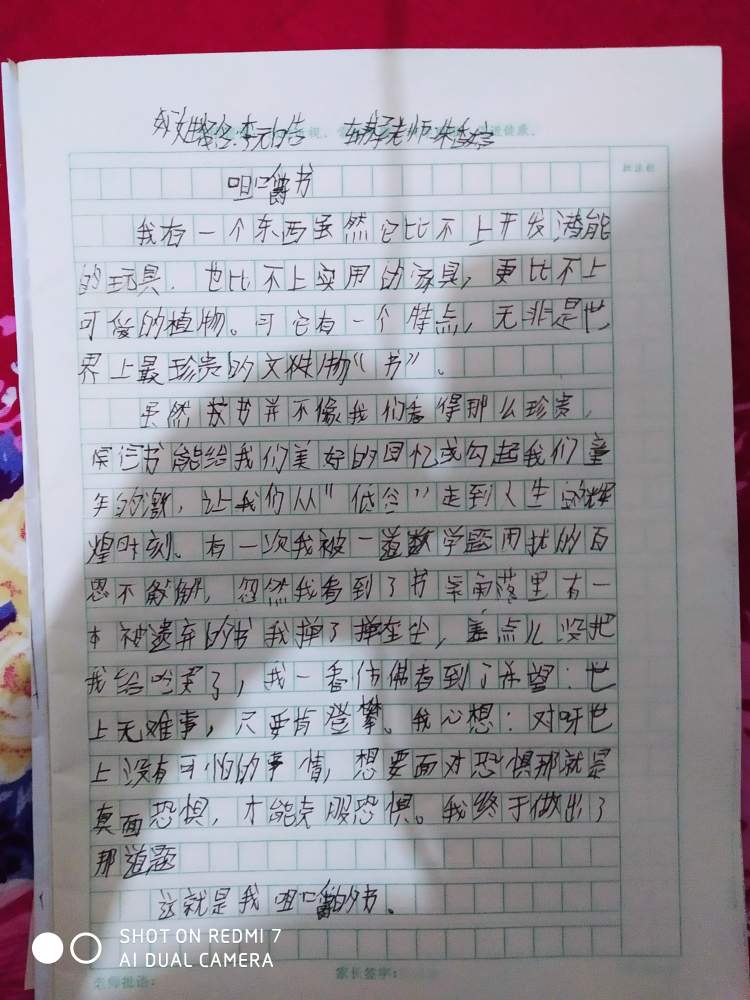 姓名:李元皓
老师:朱
咀嚼书
我有一个东西虽然它比不上开发潜能
的玩具,也比不上实用的家具,更比不上
可爱的植物。可它有一个特点,无非是世
界上最珍贵的文献物“书”。
虽然书并不像我们看得那么珍贵,
但它书能给我们美好的回忆或勾起我们童
年的激,让我们从“低谷”走到人生的辉
煌时刻。有一次我被一道数学题用扰的百
思不解,忽然我看到了书桌角落里有一
本被遗弃的书我掸了掸灰尘,差点儿没把
我给呛哭了,我一看仿佛看到了希望:世
上无难事,只要肯登攀。我心想:对呀世
上没有可怕的事情,想要面对恐惧那就是
真面恐惧,才能克服恐惧。我终于做出了
那道题
这就是我咀嚼的书。
老师批语:
家长签字:
SHOT ON REDMI 7
AI DUAL CAMERA